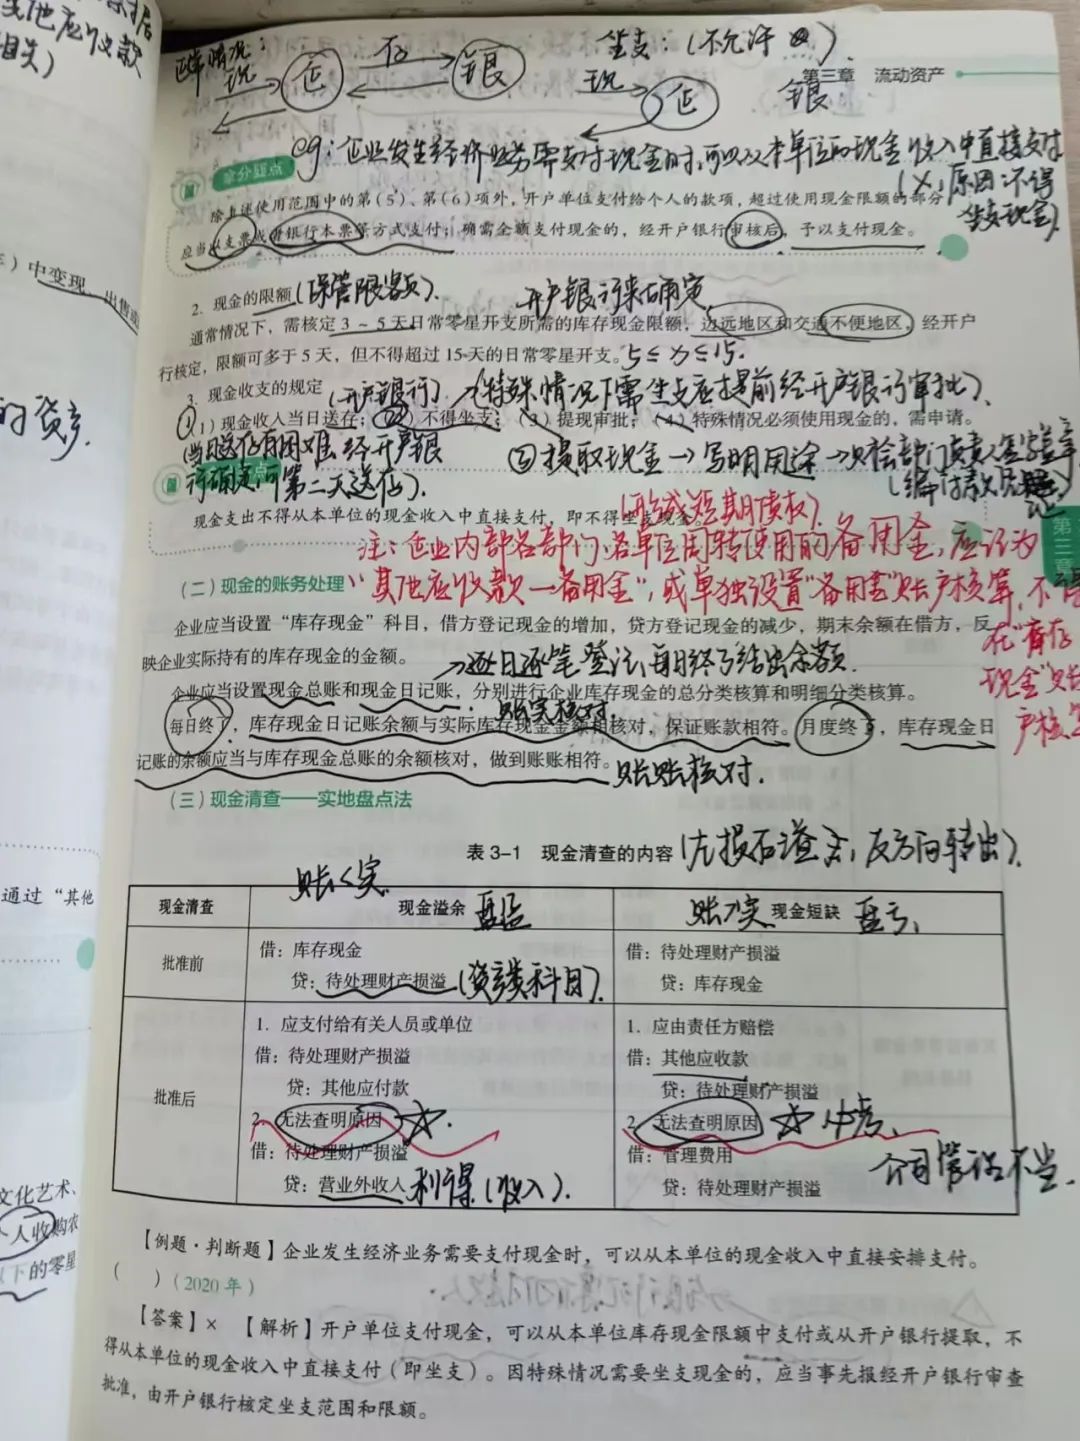 其他应收款
正常情况：
现 企 存 银
坐支：（不允许）
现 企 银
第三章 流动资产
eg：企业发生经济业务需支付现金时，可以从本单位的现金收入中直接支付
（×，原因：不得坐支现金）
拿分题点
除上述使用范围中的第（5）、第（6）项外，开户单位支付给个人的款项，超过使用现金限额的部分
应当以支票或者银行本票等方式支付；确需全额支付现金的，经开户银行审核后，予以支付现金。
）中变现，出售或
2. 现金的限额（保管限额）． 开户银行来确定
通常情况下，需核定 3 ～ 5 天日常零星开支所需的库存现金限额，边远地区和交通不便地区，经开户
行核定，限额可多于 5 天，但不得超过 15 天的日常零星开支。5≤ ≤15．
3. 现金收支的规定（开户银行） （特殊情况下需坐支应提前经开户银行审批）．
的资产．
（1）现金收入当日送存；（2）不得坐支；（3）提现审批；（4）特殊情况必须使用现金的，需申请。
（当日送存有困难，经开户银行确定可第二天送存）．
②提取现金→写明用途→财会部门负责人签字盖章
点
现金支出不得从本单位的现金收入中直接支付，即不得坐支现金。
（形成短期债权）
注：企业内部各部门、各单位周转使用的备用金，应记为
“其他应收款—备用金”，或单独设置“备用金”账户核算，不得
在“库存
现金”账
户核算
第三章
（二）现金的账务处理
企业应当设置“库存现金”科目，借方登记现金的增加，贷方登记现金的减少，期末余额在借方，反
映企业实际持有的库存现金的金额。
→逐日逐笔登记，每日终了结出余额．
企业应当设置现金总账和现金日记账，分别进行企业库存现金的总分类核算和明细分类核算。
账实核对．
每日终了，库存现金日记账余额与实际库存现金金额相核对，保证账款相符。月度终了，库存现金日
记账的余额应当与库存现金总账的余额核对，做到账账相符。账账核对．
（三）现金清查——实地盘点法
表 3-1 现金清查的内容（左损右溢，反方向转出）．
通过“其他
账<实 账>实
现金清查 现金溢余 盘盈 现金短缺 盘亏
批准前
借：库存现金
贷：待处理财产损溢（资产类科目）．
借：待处理财产损溢
贷：库存现金
批准后
1. 应支付给有关人员或单位
借：待处理财产损溢
贷：其他应付款
2. 无法查明原因☆．
借：待处理财产损溢
贷：营业外收入 利得（收入）．
1. 应由责任方赔偿
借：其他应收款
贷：待处理财产损溢
2. 无法查明原因☆
借：管理费用
贷：待处理财产损溢
公司管理不当．
文化艺术、
个人收购农
以下的零星
【例题·判断题】企业发生经济业务需要支付现金时，可以从本单位的现金收入中直接安排支付。
（ ）（2020 年）
【答案】× 【解析】开户单位支付现金，可以从本单位库存现金限额中支付或从开户银行提取，不
得从本单位的现金收入中直接支付（即坐支）。因特殊情况需要坐支现金的，应当事先报经开户银行审查
批准，由开户银行核定坐支范围和限额。